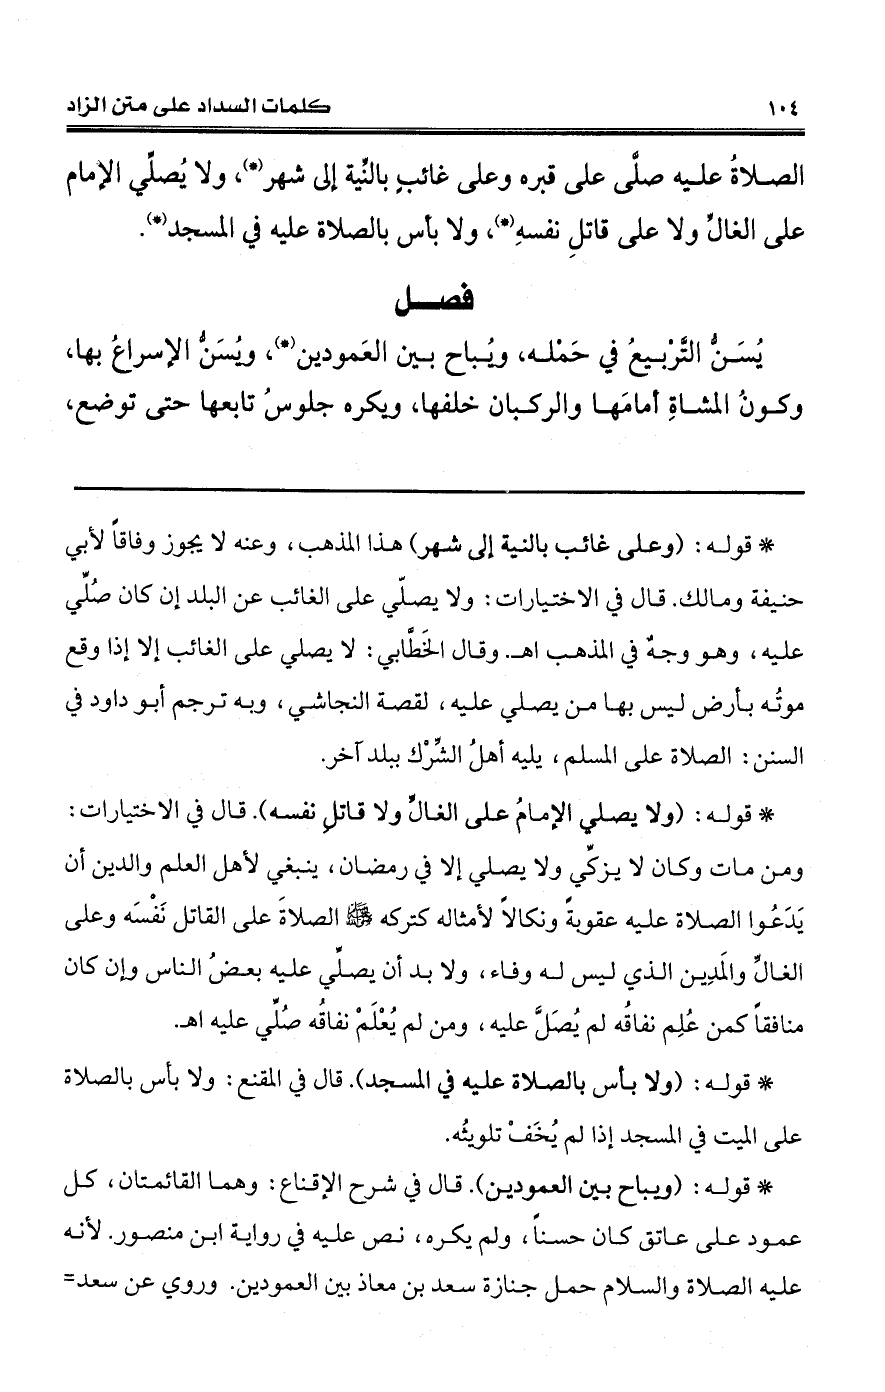 ١٠٤ كلمات السداد على متن الزاد
الصلاةُ عليه صلَّى على قبره وعلى غائبٍ بالنِّية إلى شهر(*)، ولا يُصلِّي الإمام
على الغالِّ ولا على قاتلِ نفسهِ(*)، ولا بأس بالصلاة عليه في المسجد(*).
فصل
يُسَنُّ التَّرْبيعُ في حَمْله، ويُباح بين العَمودين(*)، ويُسَنُّ الإسراعُ بها،
وكونُ المشاةِ أمامَها والركبان خلفها، ويكره جلوسُ تابعها حتى توضع،
* قوله: (وعلى غائب بالنية إلى شهر) هذا المذهب، وعنه لا يجوز وفاقاً لأبي
حنيفة ومالك. قال في الاختيارات: ولا يصلّي على الغائب عن البلد إن كان صُلِّي
عليه، وهو وجهٌ في المذهب اهـ. وقال الخَطَّابي: لا يصلي على الغائب إلا إذا وقع
موتُه بأرض ليس بها من يصلي عليه، لقصة النجاشي، وبه ترجم أبو داود في
السنن: الصلاة على المسلم، يليه أهلُ الشِّرْك ببلد آخر.
* قوله: (ولا يصلي الإمامُ على الغالِّ ولا قاتلِ نفسه). قال في الاختيارات:
ومن مات وكان لا يزكِّي ولا يصلي إلا في رمضان، ينبغي لأهل العلم والدين أن
يَدَعُوا الصلاة عليه عقوبةً ونكالاً لأمثاله كتركه ﷺ الصلاةَ على القاتل نَفْسَه وعلى
الغالِّ والمَدِين الذي ليس له وفاء، ولا بد أن يصلِّي عليه بعضُ الناس وإن كان
منافقاً كمن عُلِم نفاقُه لم يُصَلَّ عليه، ومن لم يُعْلَمْ نفاقُه صُلِّي عليه اهـ.
* قوله: (ولا بأس بالصلاة عليه في المسجد). قال في المقنع: ولا بأس بالصلاة
على الميت في المسجد إذا لم يُخَفْ تلويثُه.
* قوله: (ويباح بين العمودين). قال في شرح الإقناع: وهما القائمتان، كل
عمود على عاتق كان حسناً، ولم يكره، نص عليه في رواية ابن منصور. لأنه
عليه الصلاة والسلام حمل جنازة سعد بن معاذ بين العمودين. وروي عن سعد=